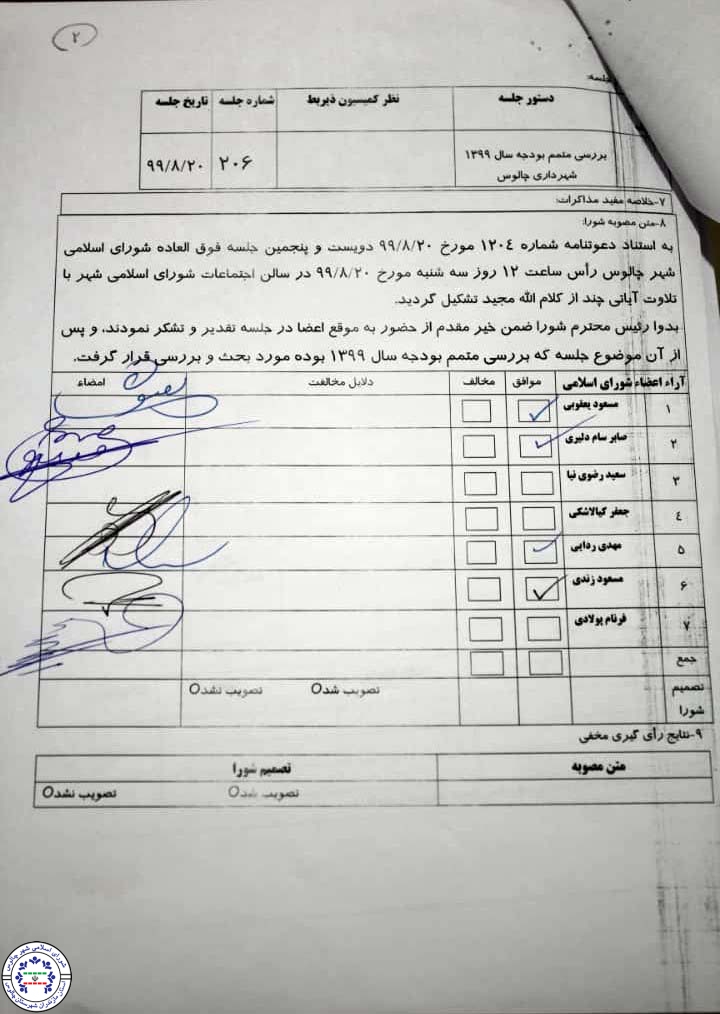 ۲
جلسه:
دستور جلسه نظر کمیسیون ذیربط شماره جلسه تاریخ جلسه
بررسی متمم بودجه سال ۱۳۹۹ شهرداری چالوس ۲۰۶ ۹۹/۸/۲۰
۷-خلاصه مفید مذاکرات:
۸-متن مصوبه شورا:
به استناد دعوتنامه شماره ۱۲۰۴ مورخ ۹۹/۸/۲۰ دویست و پنجمین جلسه فوق العاده شورای اسلامی
شهر چالوس رأس ساعت ۱۲ روز سه شنبه مورخ ۹۹/۸/۲۰ در سالن اجتماعات شورای اسلامی شهر با
تلاوت آیاتی چند از کلام الله مجید تشکیل گردید.
بدوا رئیس محترم شورا ضمن خیر مقدم از حضور به موقع اعضا در جلسه تقدیر و تشکر نمودند، و پس
از آن موضوع جلسه که بررسی متمم بودجه سال ۱۳۹۹ بوده مورد بحث و بررسی قرار گرفت.
آراء اعضاء شورای اسلامی موافق مخالف دلایل مخالفت امضاء
۱ مسعود یعقوبی
۲ صابر سام دلیری
۳ سعید رضوی نیا
۴ جعفر کیالاشکی
۵ مهدی ردایی
۶ مسعود زندی
۷ فرنام پولادی
جمع
تصمیم شورا تصویب شد تصویب نشد
۹-نتایج رأی گیری مخفی
متن مصوبه تصمیم شورا
تصویب شد تصویب نشد
شورای اسلامی شهر چالوس
استان مازندران شهرستان چالوس